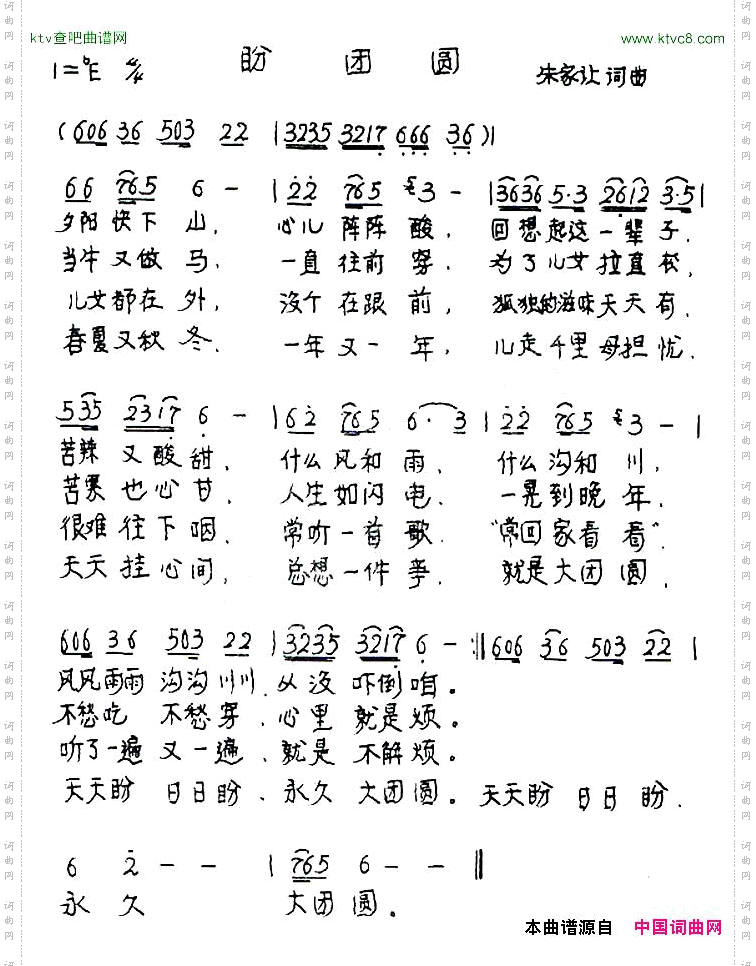 ktv查吧曲谱网
www.ktvc8.com
盼 团 圆
1=♭E 4/4
朱家让 词曲
(606 36 503 22 |3235 3217 666 36)|
66 765 6 - |22 765 3 - |3636 5·3 2612 3·5|
夕阳快下 山, 心儿阵阵 酸, 回想起这一辈子,
当牛又做 马, 一直往前 穿, 为了儿女拉直松,
儿女都在 外, 没个在跟 前, 孤独的滋味天天有,
春夏又秋 冬, 一年又一 年, 儿走千里母担忧,
535 2317 6 - |62 765 6· 3 |22 765 3 - |
苦辣又酸甜, 什么风和 雨, 什么沟和 川,
苦累也心甘, 人生如闪 电, 一晃到晚 年,
很难往下咽, 常听一首 歌, “常回家看 看”,
天天挂心间, 总想一件 事, 就是大团圆,
606 36 503 22 |3235 3217 6 - :‖606 36 503 22 |
风风雨雨 沟沟川川, 从没吓倒咱。
不愁吃 不愁穿, 心里就是烦。
听了一遍又一遍, 就是不解烦。
天天盼 日日盼, 永久大团圆。天天盼 日日盼,
6 2 - - |765 6 - - ‖
永 久 大团圆。
本曲谱源自 中国词曲网
词曲网